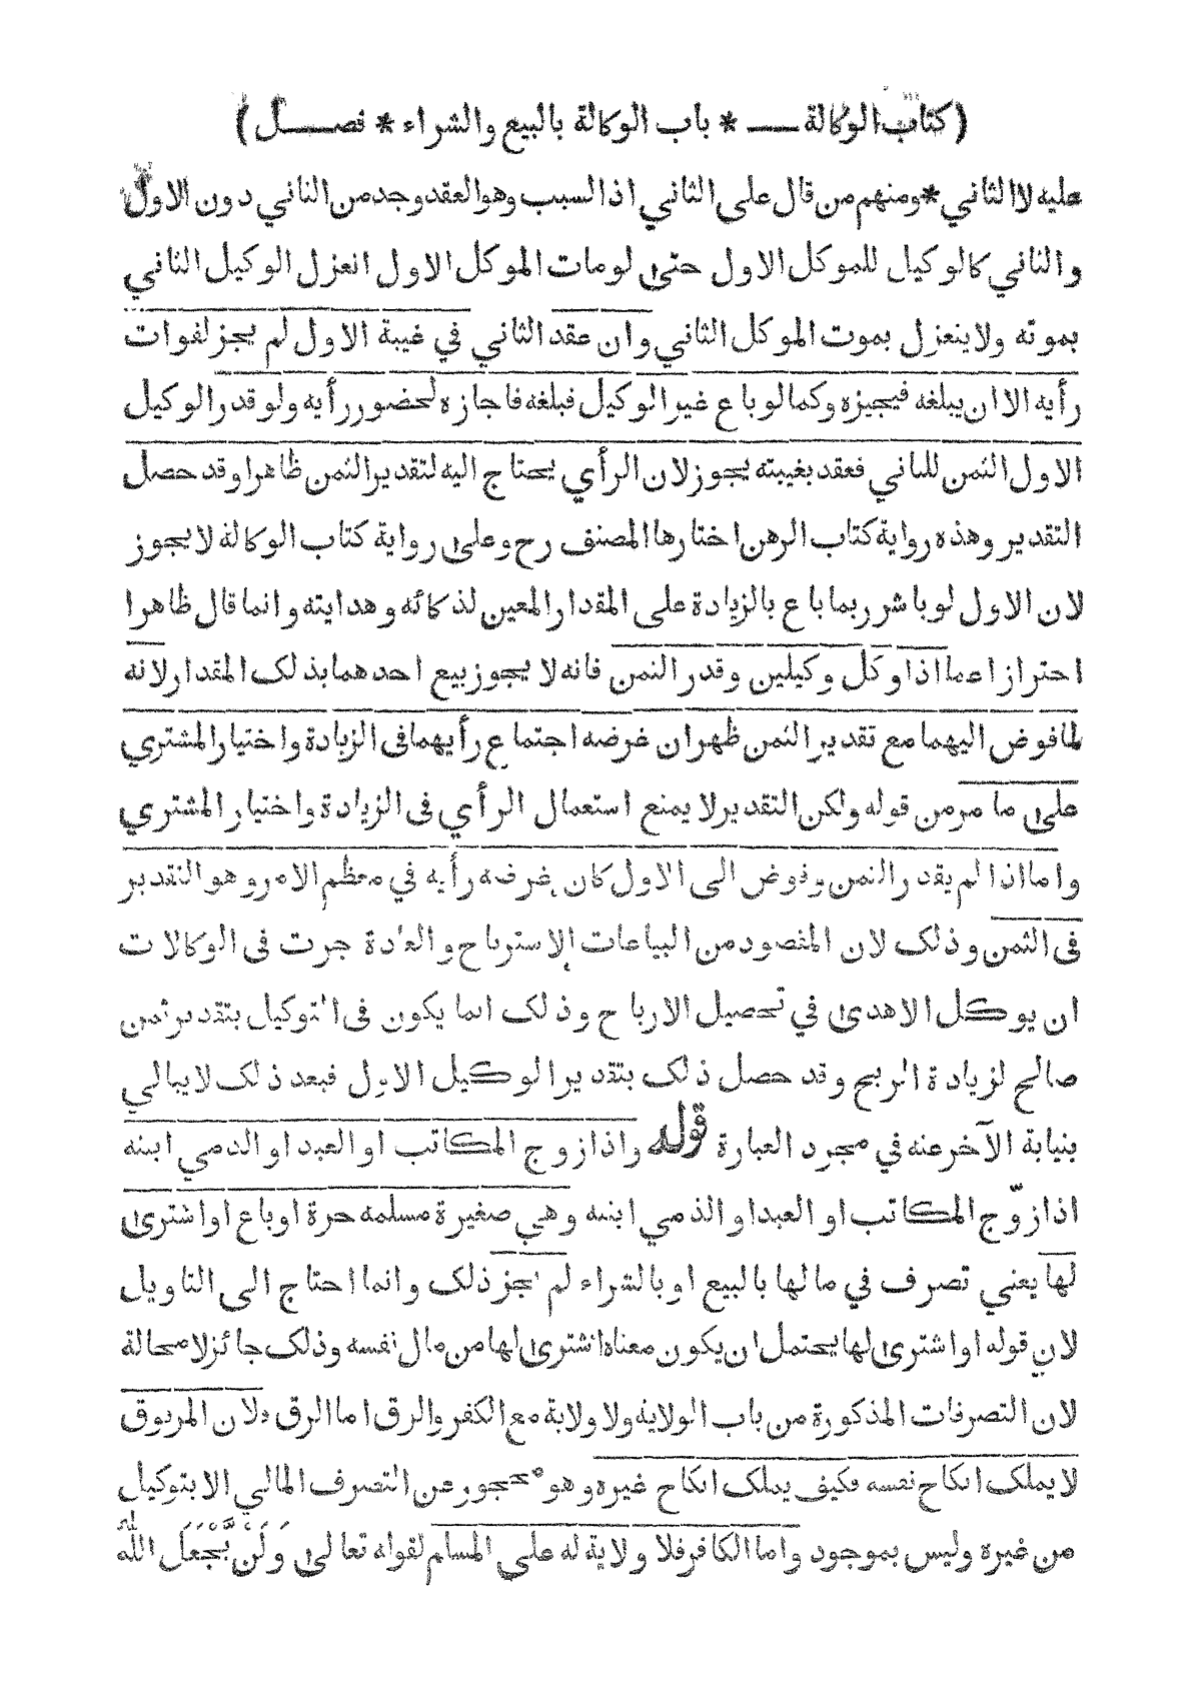 (كتاب الوكالة — * باب الوكالة بالبيع والشراء * فصل)
عليه لا الثاني * ومنهم من قال على الثاني اذ السبب وهو العقد وجد من الثاني دون الاول
والثاني كالوكيل للموكل الاول حتى لو مات الموكل الاول انعزل الوكيل الثاني
بموته ولا ينعزل بموت الموكل الثاني وان عقد الثاني في غيبة الاول لم يجز لفوات
رأيه الا ان يبلغه فيجيزه وكما لو باع غير الوكيل فبلغه فاجازه لحضور رأيه ولو قدر الوكيل
الاول الثمن للثاني فعقد بغيبته يجوز لان الرأي يحتاج اليه لتقدير الثمن ظاهرا وقد حصل
التقدير وهذه رواية كتاب الرهن اختارها المصنف رح وعلى رواية كتاب الوكالة لا يجوز
لان الاول لو باشر ربما باع بالزيادة على المقدار المعين لذكائه وهدايته وانما قال ظاهرا
احترازا عما اذا وكل وكيلين وقدر الثمن فانه لا يجوز بيع احدهما بذلك المقدار لانه
لما فوض اليهما مع تقدير الثمن ظهر ان غرضه اجتماع رأيهما فى الزيادة واختيار المشتري
على ما مر من قوله ولكن التقدير لا يمنع استعمال الرأي فى الزيادة واختيار المشتري
واما اذا لم يقدر الثمن وفوض الى الاول كان غرضه رأيه في معظم الامر وهو التقدير
فى الثمن وذلك لان المقصود من البياعات الاسترباح والعادة جرت فى الوكالات
ان يوكل الاهدى في تحصيل الارباح وذلك انما يكون فى التوكيل بتقدير ثمن
صالح لزيادة الربح وقد حصل ذلك بتقدير الوكيل الاول فبعد ذلك لا يبالي
بنيابة الآخر عنه في مجرد العبارة قوله واذا زوج المكاتب او العبد او الذمي ابنته
اذا زوّج المكاتب او العبد او الذمي ابنته وهي صغيرة مسلمة حرة او باع او اشترى
لها يعني تصرف في مالها بالبيع او بالشراء لم يجز ذلك وانما احتاج الى التاويل
لان قوله او اشترى لها يحتمل ان يكون معناه اشترى لها من مال نفسه وذلك جائز لا محالة
لان التصرفات المذكورة من باب الولاية ولا ولاية مع الكفر والرق اما الرق فلان المرقوق
لا يملك انكاح نفسه فكيف يملك انكاح غيره وهو محجور عن التصرف المالي الا بتوكيل
من غيره وليس بموجود واما الكافر فلا ولاية له على المسلم لقوله تعالى وَلَنْ يَّجْعَلَ اللّٰه